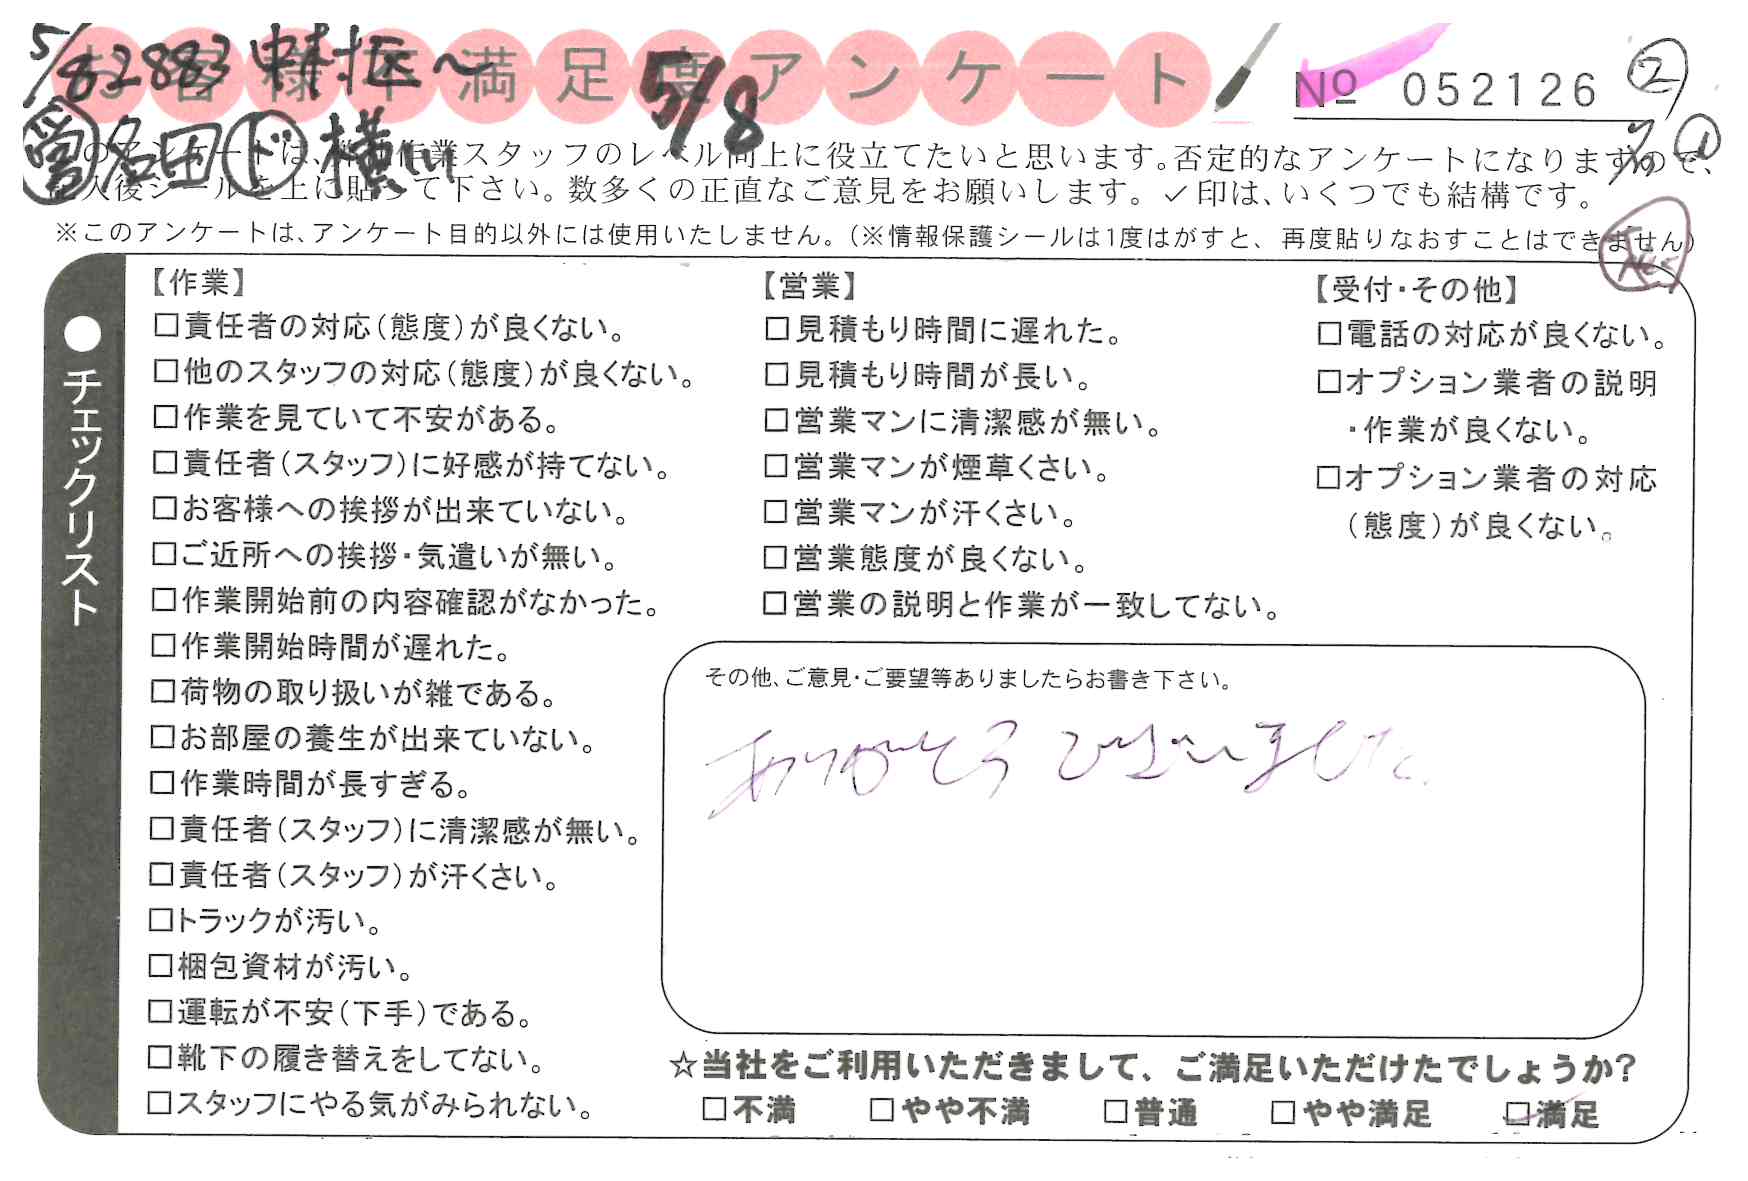 お客様不満足度アンケート
5/8 2883
5/8
№ 052126
②
営 名田 ド 横山
このアンケートは、弊社作業スタッフのレベル向上に役立てたいと思います。否定的なアンケートになりますので、
記入後シールを上に貼って下さい。数多くの正直なご意見をお願いします。✓印は、いくつでも結構です。
※このアンケートは、アンケート目的以外には使用いたしません。(※情報保護シールは1度はがすと、再度貼りなおすことはできません)
●チェックリスト
【作業】
□責任者の対応(態度)が良くない。
□他のスタッフの対応(態度)が良くない。
□作業を見ていて不安がある。
□責任者(スタッフ)に好感が持てない。
□お客様への挨拶が出来ていない。
□ご近所への挨拶・気遣いが無い。
□作業開始前の内容確認がなかった。
□作業開始時間が遅れた。
□荷物の取り扱いが雑である。
□お部屋の養生が出来ていない。
□作業時間が長すぎる。
□責任者(スタッフ)に清潔感が無い。
□責任者(スタッフ)が汗くさい。
□トラックが汚い。
□梱包資材が汚い。
□運転が不安(下手)である。
□靴下の履き替えをしてない。
□スタッフにやる気がみられない。
【営業】
□見積もり時間に遅れた。
□見積もり時間が長い。
□営業マンに清潔感が無い。
□営業マンが煙草くさい。
□営業マンが汗くさい。
□営業態度が良くない。
□営業の説明と作業が一致してない。
【受付・その他】
□電話の対応が良くない。
□オプション業者の説明
・作業が良くない。
□オプション業者の対応
(態度)が良くない。
その他、ご意見・ご要望等ありましたらお書き下さい。
ありがとうございました。
☆当社をご利用いただきまして、ご満足いただけたでしょうか?
□不満 □やや不満 □普通 □やや満足 ☑満足